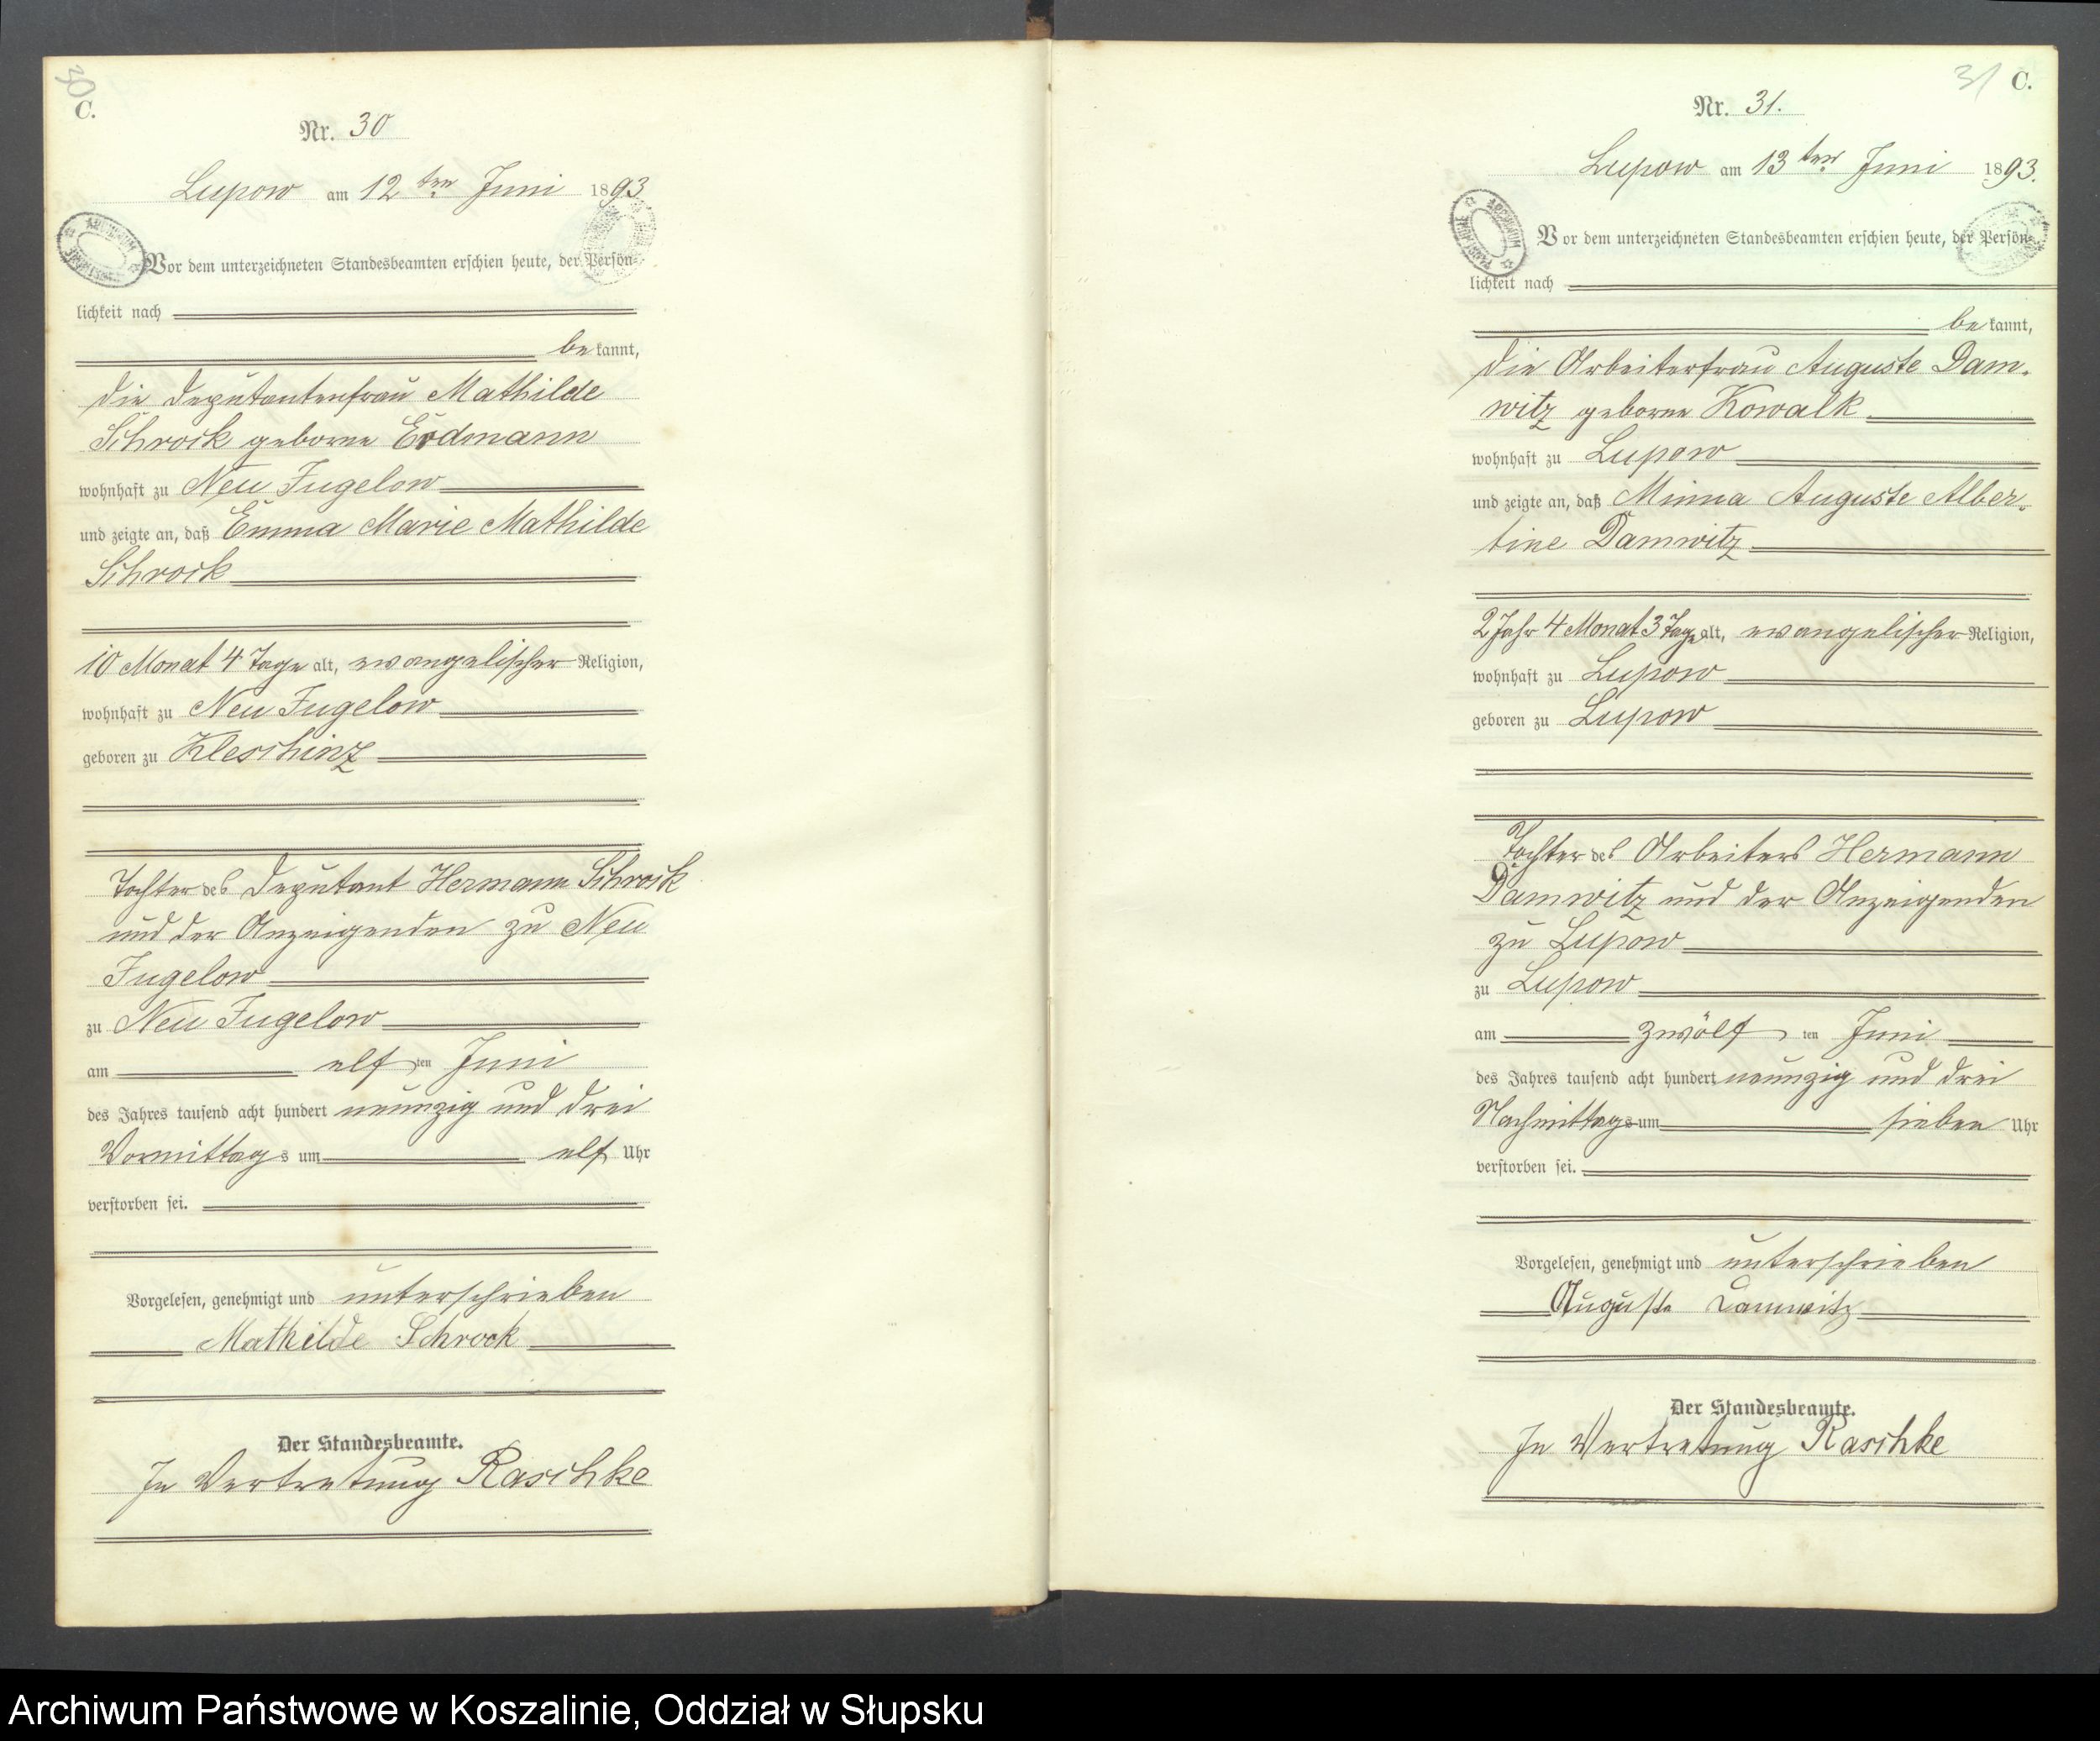 30
C.
Nr. 30
Lupow am 12ten Juni 1893
ARCHIWUM
Vor dem unterzeichneten Standesbeamten erschien heute, der Persön-
lichkeit nach
bekannt,
die Deputantenfrau Mathilde
Schrock geborne Erdmann
wohnhaft zu Neu Jugelow
und zeigte an, daß Emma Marie Mathilde
Schrock
10 Monat 4 Tage alt, evangelischer Religion,
wohnhaft zu Neu Jugelow
geboren zu Kleschinz
Tochter des Deputant Hermann Schrock
und der Anzeigenden zu Neu
Jugelow
zu Neu Jugelow
am elften Juni
des Jahres tausend acht hundert neunzig und drei
Vormittags um elf Uhr
verstorben sei.
Vorgelesen, genehmigt und unterschrieben
Mathilde Schrock
Der Standesbeamte.
In Vertretung Raschke
31
C.
Nr. 31.
Lupow am 13ten Juni 1893.
ARCHIWUM PAŃSTWOWE
Vor dem unterzeichneten Standesbeamten erschien heute, der Persön-
lichkeit nach
bekannt,
die Arbeiterfrau Auguste Dam-
witz geborne Kowalk
wohnhaft zu Lupow
und zeigte an, daß Minna Auguste Alber-
tine Damwitz
2 Jahr 4 Monat 3 Tage alt, evangelischer Religion,
wohnhaft zu Lupow
geboren zu Lupow
Tochter des Arbeiters Hermann
Damwitz und der Anzeigenden
zu Lupow
zu Lupow
am zwölften Juni
des Jahres tausend acht hundert neunzig und drei
Nachmittags um sieben Uhr
verstorben sei.
Vorgelesen, genehmigt und unterschrieben
Auguste Damwitz
Der Standesbeamte.
In Vertretung Raschke
Archiwum Państwowe w Koszalinie, Oddział w Słupsku